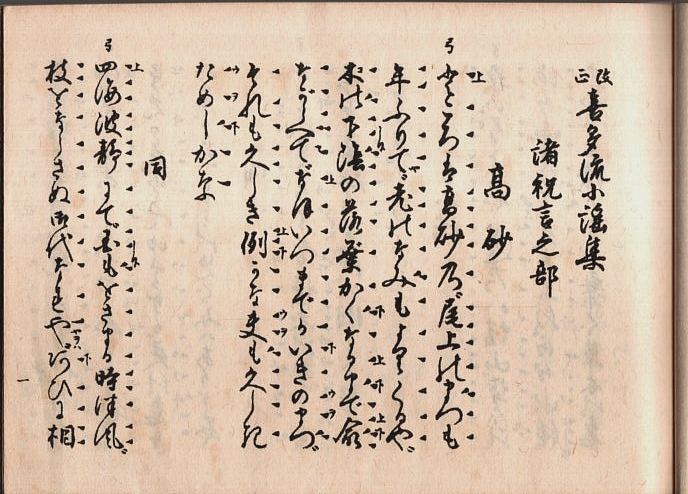 改正 喜多流小謡集
諸祝言之部
高砂
ところは高砂乃。尾上のまつも
年ふりて。老のなみもよりくるや。
木の下陰の落葉かくなるまで命
ながらへてなほいつまでかいきのまつ。
それも久しき例かな夫も久しき
ためしかな
同
四海波静にて国もをさまる時津風。
枝をならさぬ御代なれや。あひに相
一